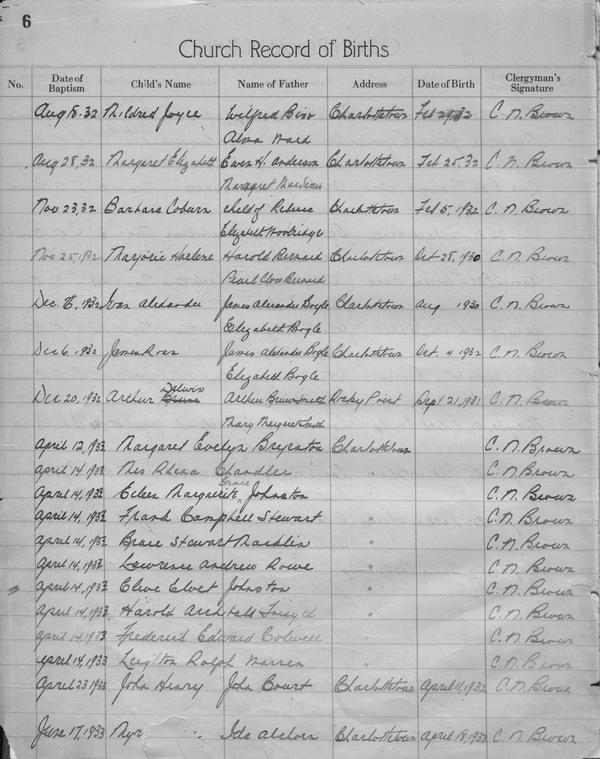 6
Church Record of Births
No. Date of Baptism Child's Name Name of Father Address Date of Birth Clergyman's Signature
Aug 18.32 Mildred Joyce Wilfred Charlottetown Feb 32 C. N. Brown
Alma Ward
Aug 28, 32 Margaret Elizabeth Ewen H. Anderson Charlottetown Feb 25, 32 C. N. Brown
Margaret
Nov 23, 32 Barbara Coburn child of Rebecca Charlottetown Feb 5, 1932 C. N. Brown
Elizabeth Woolridge
Nov 25, 1932 Marjorie Harlene Harold Bernard Charlottetown Oct 28, 1930 C. N. Brown
Pearl Bernard
Dec. 6, 1932 Ivan Alexander James Alexander Bogle Charlottetown Aug 1930 C. N. Brown
Elizabeth Bogle
Dec 6, 1932 James Ross James Alexander Bogle Charlottetown Oct. 4 1932 C. N. Brown
Elizabeth Bogle
Delwin
Dec 20, 1932 Arthur Bruce Arthur Bruce Smith Rocky Point Sept 21, 1931 C. N. Brown
Mary Margaret Smith
April 12, 1933 Margaret Evelyn Bryenton Charlottetown C. N. Brown
April 14, 1933 Mrs Rhena Chandler " C. N. Brown
Grace
April 14, 1933 Eileen Marguerite Johnston " C. N. Brown
April 14, 1933 Frank Campbell Stewart " C. N. Brown
April 14, 1933 Bruce Stewart " C. N. Brown
April 14, 1933 Lawrence Andrew Rowe " C. N. Brown
April 14, 1933 Clive Elvet Johnston " C. N. Brown
April 14, 1933 Harold Archibald " C. N. Brown
April 14, 1933 Frederick Edward Colwell C. N. Brown
April 14, 1933 Leighton Ralph Warren " C. N. Brown
April 23 1933 John Henry John Court Charlottetown April 11, 1932 C. N. Brown
June 17, 1933 Ida Charlottetown April 18, 1933 C. N. Brown